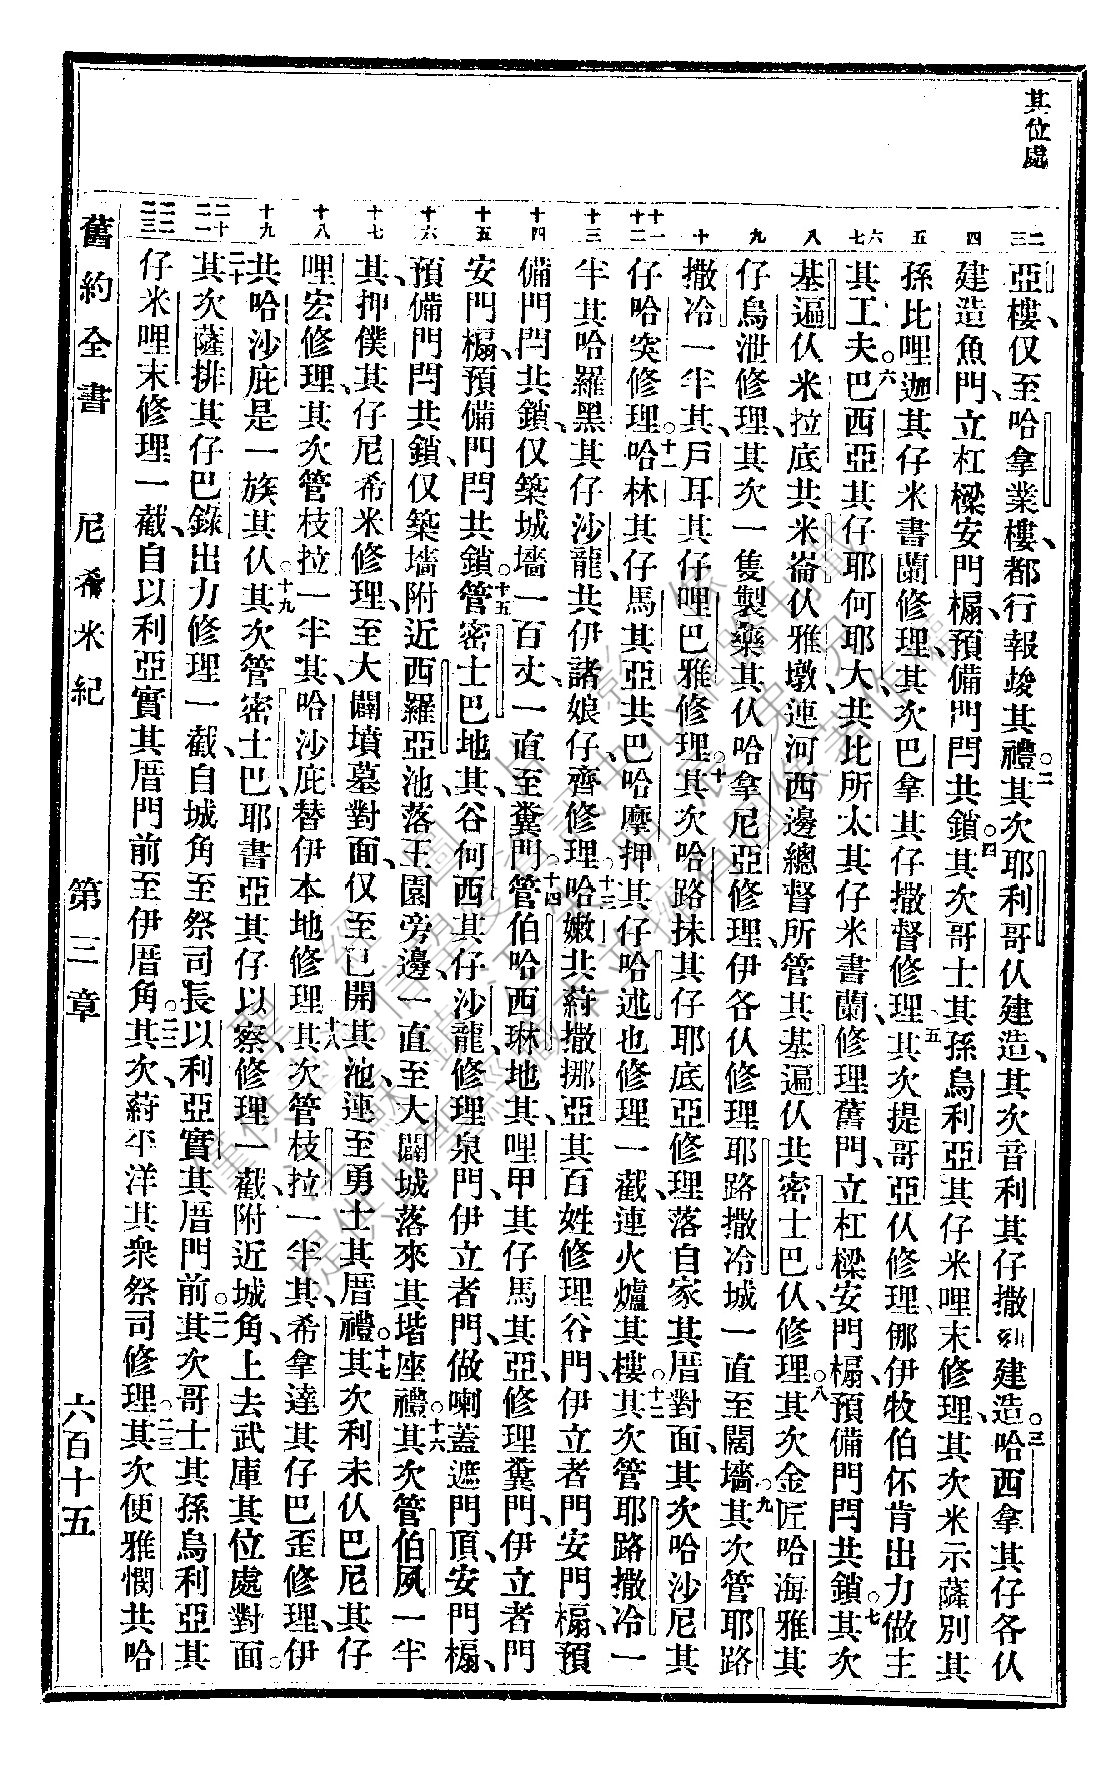 其位處
亞樓、仅至哈拿業樓、都行報竣其禮。二其次耶利哥仈建造、其次音利其仔撒刻建造。三哈西拿其仔各仈
建造魚門、立杠樑安門楄、預備門閂共鎖。四其次哥士其孫烏利亞其仔米哩末修理、其次米示薩別其
孫比哩迦其仔米書蘭修理、其次巴拿其仔撒督修理、五其次提哥亞仈修理、那伊牧伯怀肯出力做主
其工夫。六巴西亞其仔耶何耶大、共比所太其仔米書蘭修理舊門、立杠樑安門楄、預備門閂共鎖。七其次
基遍仈米拉底共米崙仈雅墩、連河西邊總督所管其基遍仈共密士巴仈修理。八其次金匠哈海雅其
仔烏泄修理、其次一隻製藥其仈哈拿尼亞修理、伊各仈修理耶路撒冷城一直至闊墻。九其次管耶路
撒冷一半其、戶耳其仔哩巴雅修理。十其次哈路抹其仔耶底亞修理落自家其厝對面、其次哈沙尼其
仔哈突修理。十一哈林其仔馬其亞共巴哈摩押其仔哈述也修理一截連火爐其樓。十二其次管耶路撒冷一
半其哈羅黑其仔沙龍、共伊諸娘仔齊修理。十三哈嫩共葤撒挪亞其百姓修理谷門、伊立者門安門楄、預
備門閂共鎖、仅築城墻一百丈、一直至糞門。十四管伯哈西琳地其、哩甲其仔馬其亞修理糞門、伊立者門
安門楄、預備門閂共鎖。十五管密士巴地其、谷何西其仔沙龍修理泉門、伊立者門、做喇蓋遮門頂、安門楄、
預備門閂共鎖、仅築墻附近西羅亞池落王園旁邊、一直至大闢城落來其堦座禮。十六其次管伯夙一半
其、押僕其仔尼希米修理、至大闢墳墓對面、仅至已開其池、連至勇士其厝禮。十七其次利未仈巴尼其仔
哩宏修理、其次管枝拉一半其、哈沙庇替伊本地修理。十八其次管枝拉一半其、希拿達其仔巴歪修理、伊
共哈沙庇是一族其仈。十九其次管密士巴、耶書亞其仔以察修理一截、附近城角、上去武庫其位處對面。
二十其次薩排其仔巴錄出力修理一截、自城角至祭司長以利亞實其厝門前。二一其次哥士其孫烏利亞其
仔米哩末修理一截、自以利亞實其厝門前至伊厝角。二二其次、葤平洋其衆祭司修理。二三其次便雅憫共哈
二 三 四 五 六 七 八 九 十 十一 十二 十三 十四 十五 十六 十七 十八 十九 二十 二一 二二 二三
舊約全書 尼希米紀 第三章 六百十五